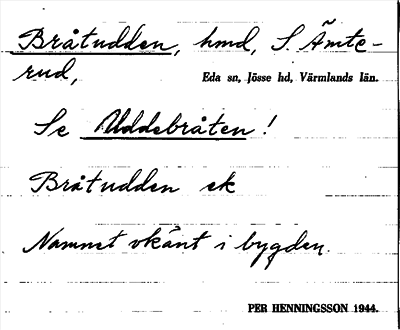 Bråtudden, hmd, S. Ämte-
rud,
Eda sn, Jösse hd, Värmlands län.
Se Uddebråten!
Bråtudden ek
Namnet okänt i bygden.
PER HENNINGSSON 1944.